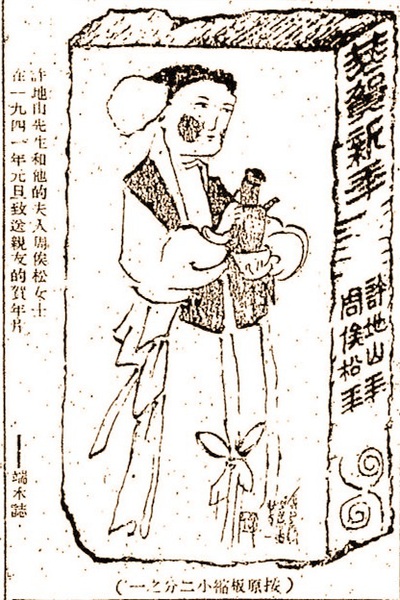 恭賀新年
許地山
周俟松
許地山先生和他的夫人周俟松女士
在一九四一年元旦致送親友的賀年片
——端木誌
（按原板縮小二分之一）